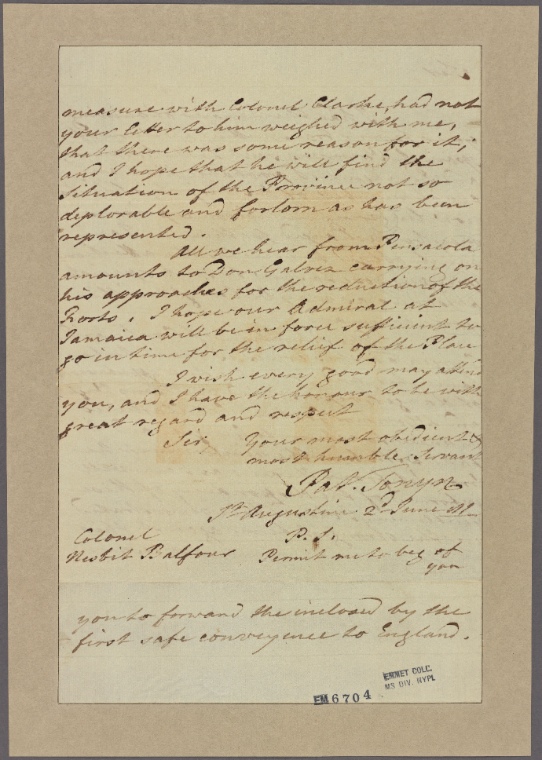 measure with Colonel Clarke, had not
your letter to him weighed with me,
that there was some reason for it;
and I hope that he will find the
situation of the Province not so
deplorable and forlorn as has been
represented.
All we hear from Pensacola
amounts to Don Galvez carrying on
his approaches for the reduction of the
Forts. I hope our Admiral at
Jamaica will be in force sufficient to
go in time for the relief of the Place
I wish every good may attend
you, and I have the honour to be with
great regard and respect
Sir, Your most obedient &
most humble Servant
Pat. Tonyn
St. Augustine 2d. June
Colonel P.S.
Nesbit Balfour Permit me to beg of
you
you to forward the inclosed by the
first safe conveyence to England.
EMMET COLC.
MS DIV. NYPL
EM6704